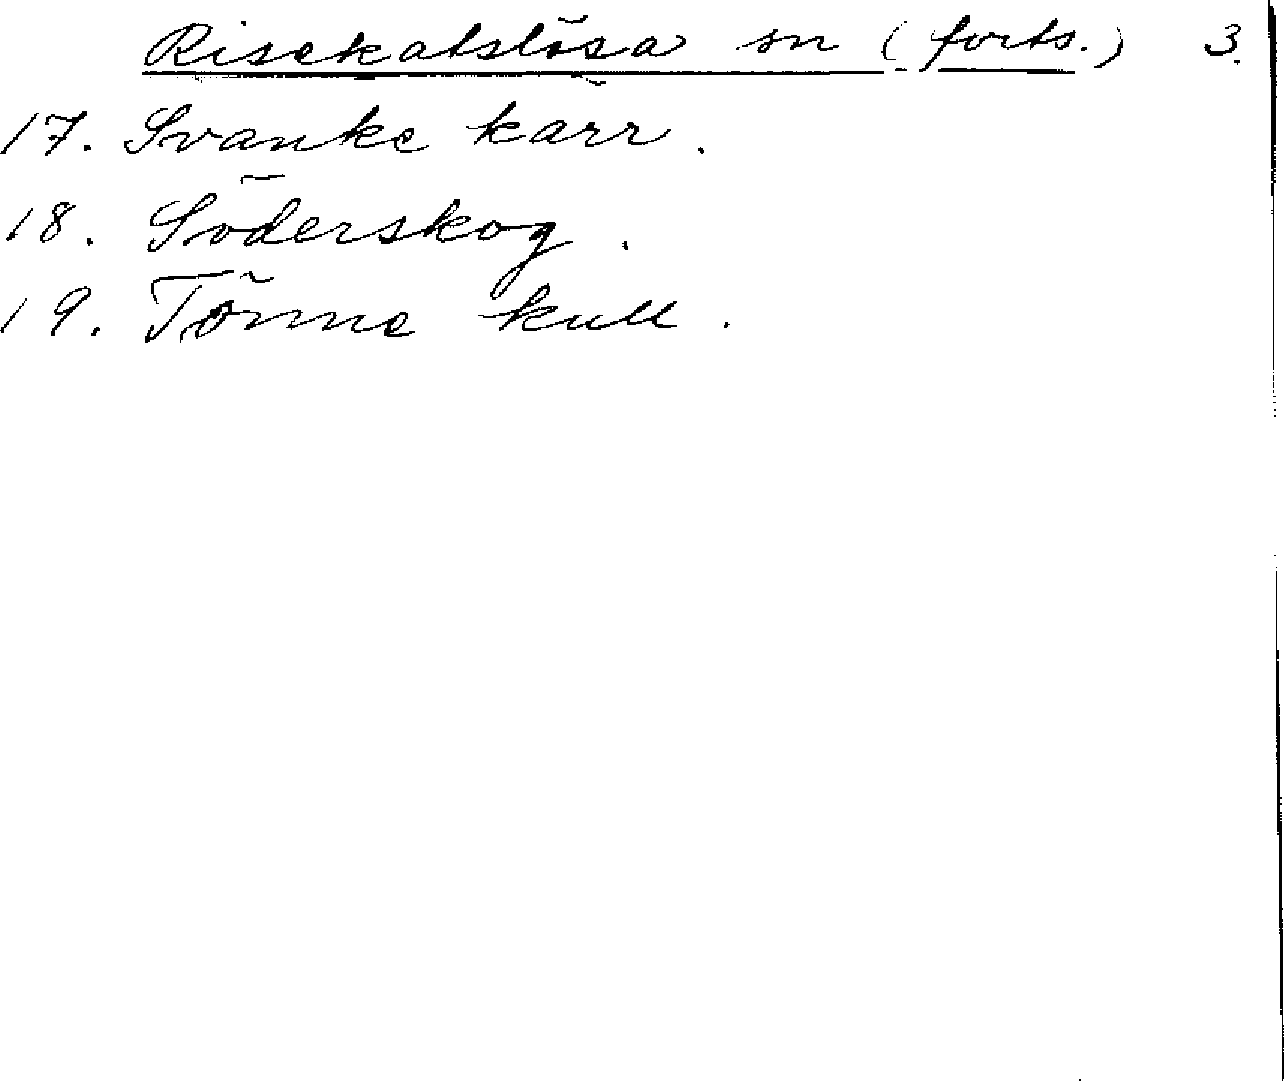 Risekatslösa sn (forts.) 3.
17. Svanke kärr.
18. Söderskog.
19. Tönne kull.